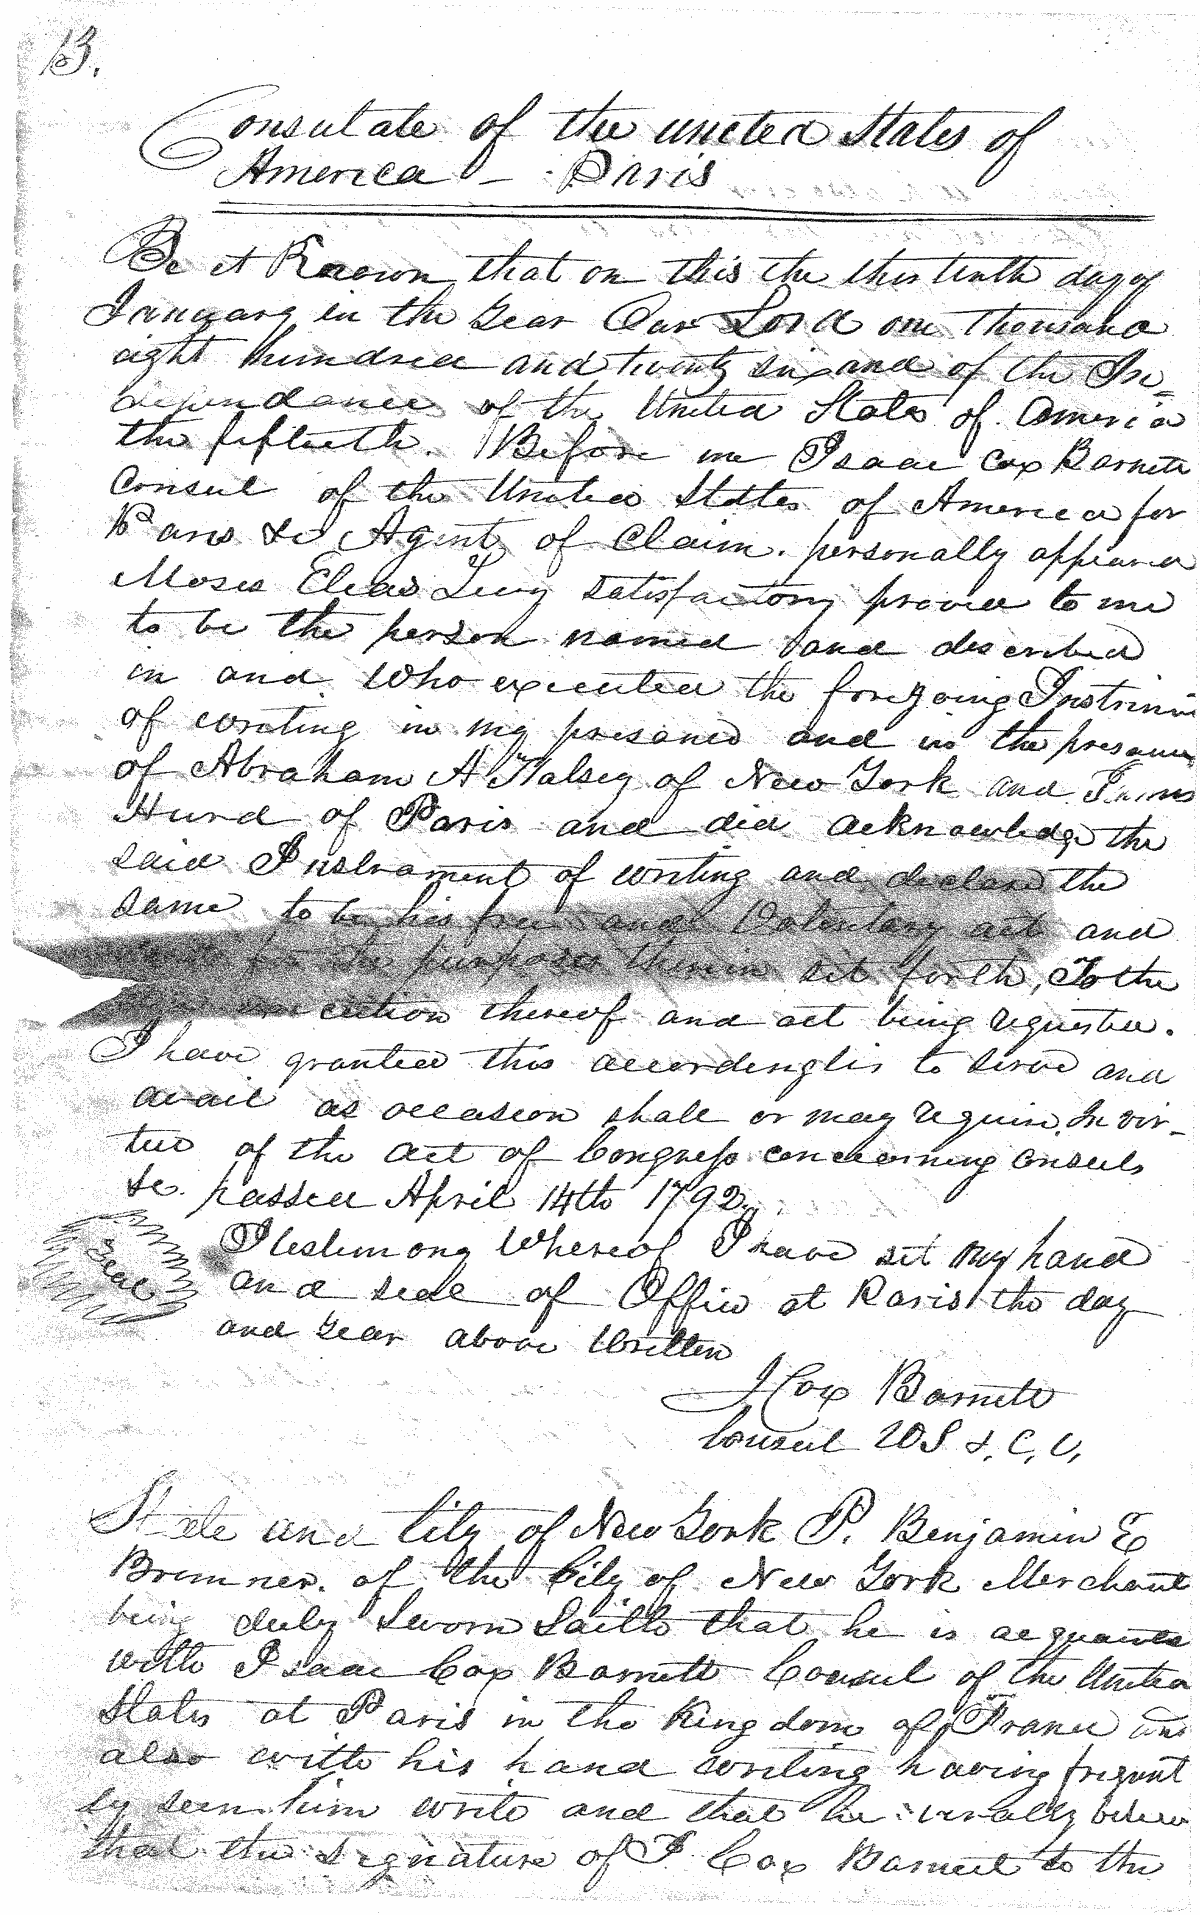 13.
Consulate of the united States of
America – Paris
Be it Known that on this the thirtenth day of
January in the year Our Lord one thousand
eight hundred and twenty six and of the In=
dependance of the United States of America
the fiftieth. Before me Isaac Cox Barnett
Consul of the United States of America for
Paris &c Agent of Claim. personally appeared
Moses Elias Levy satisfactory proved to me
to be the person named and described
in and who executed the foregoing
of writing in my presance and in the
of Abraham A Halsey of New York and
Hurd of Paris and did acknowledge the
said Instrament of writing and declare the
same to be his free and Voluntary act and
for the purposes therein set forth, To the
execution thereof and act being requested.
I have granted this accordinglis to serve and
avail as occasion shall or may require. In vir-
tue of the act of Congress concerning consuls
&c. passed April 14th 1792.
Seal
I testimony Whereof I have set my hand
and seal of Office at Paris the day
and year above Written
J Cox Barnett
Consul US &. C, C,
State and City of New York P. Benjamin E
Bremner. of the City of New York Merchant
being duly Sworn Saith that he is acquainted
with Isaac Cox Barnett Consul of the United
States at Paris in the Kingdom of France and
also with his hand writing having frequent
ly seen him write and that he verally
that the signature of I Cox Barnett to the